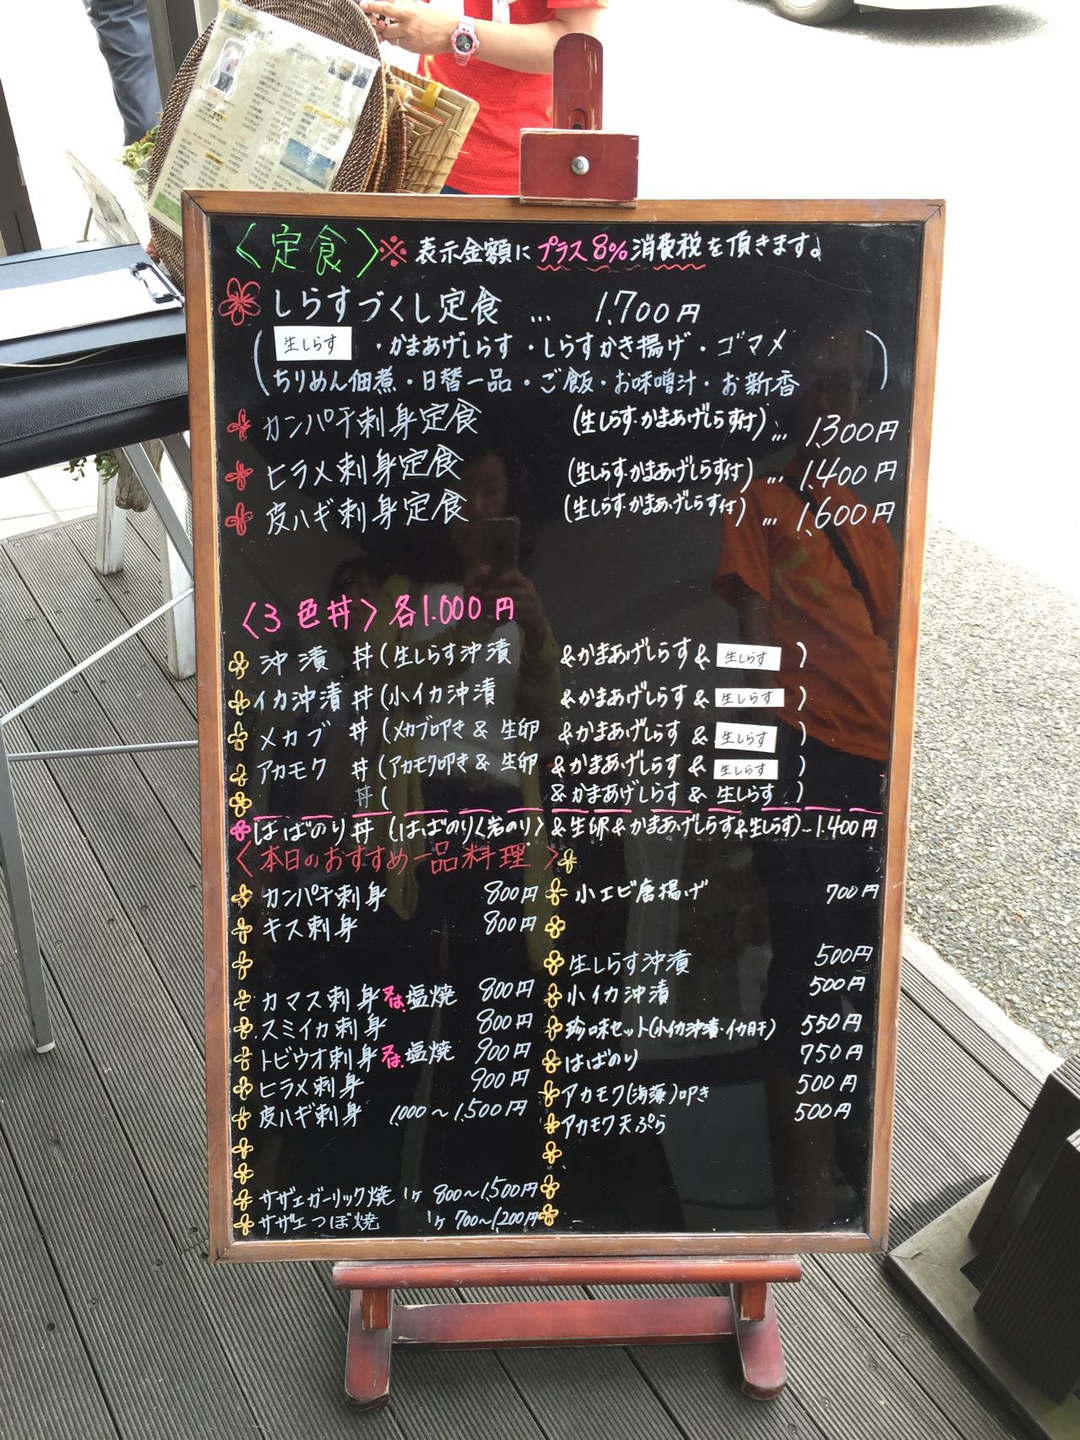 〈定食〉※表示金額にプラス8%消費税を頂きます。
しらすづくし定食 … 1,700円
(生しらす・かまあげしらす・しらすかき揚げ・ゴマメ
ちりめん佃煮・日替一品・ご飯・お味噌汁・お新香)
カンパチ刺身定食 (生しらす・かまあげしらす付) … 1,300円
ヒラメ刺身定食 (生しらす・かまあげしらす付) … 1,400円
皮ハギ刺身定食 (生しらす・かまあげしらす付) … 1,600円
〈3色丼〉各1,000円
沖漬丼(生しらす沖漬 &かまあげしらす&生しらす)
イカ沖漬丼(小イカ沖漬 &かまあげしらす&生しらす)
メカブ丼(メカブ叩き&生卵 &かまあげしらす&生しらす)
アカモク丼(アカモク叩き&生卵 &かまあげしらす&生しらす)
丼( &かまあげしらす&生しらす)
はばのり丼(はばのり〈岩のり〉&生卵&かまあげしらす&生しらす)…1,400円
〈本日のおすすめ一品料理〉
カンパチ刺身 800円
キス刺身 800円
カマス刺身又は塩焼 800円
スミイカ刺身 800円
トビウオ刺身又は塩焼 900円
ヒラメ刺身 900円
皮ハギ刺身 1,000〜1,500円
サザエガーリック焼 1ヶ 800〜1,500円
サザエつぼ焼 1ヶ 700〜1,200円
小エビ唐揚げ 700円
生しらす沖漬 500円
小イカ沖漬 500円
珍味セット(小イカ沖漬・イカ日干) 550円
はばのり 750円
アカモク(海藻)叩き 500円
アカモク天ぷら 500円